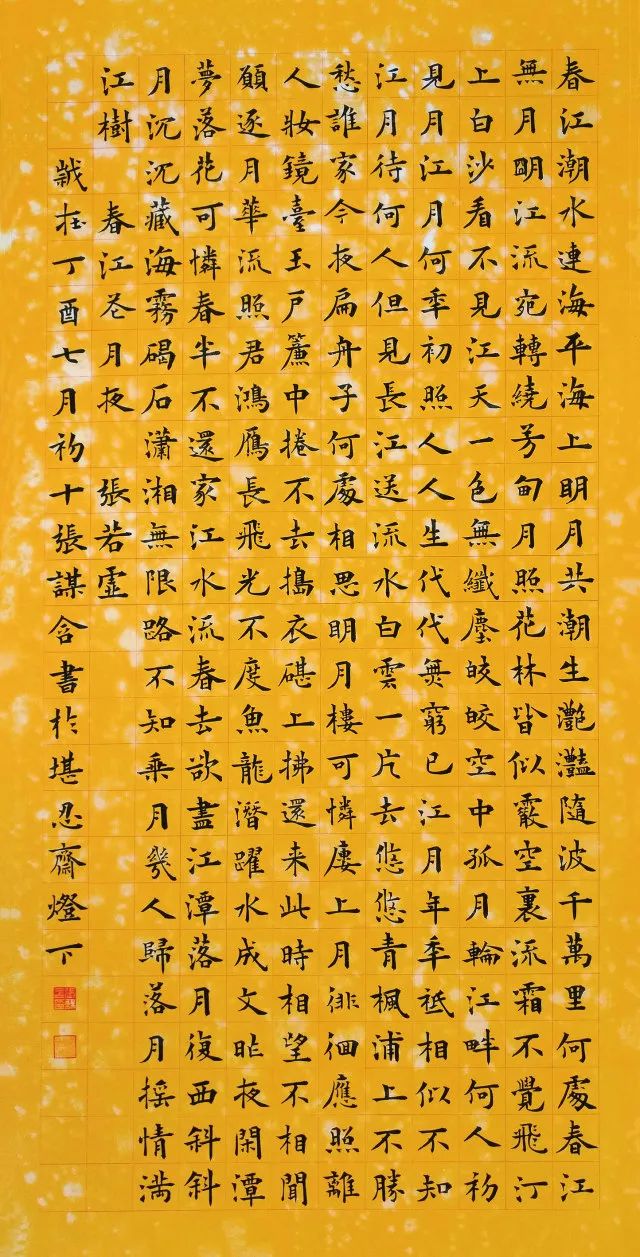 春江潮水連海平海上明月共潮生灧灩隨波千萬里何處春江
無月明江流宛轉繞芳甸月照花林皆似霰空裏流霜不覺飛汀
上白沙看不見江天一色無纖塵皎皎空中孤月輪江畔何人初
見月江月何秊初照人人生代代無窮已江月年秊祗相似不知
江月待何人但見長江送流水白雲一片去悠悠青楓浦上不勝
愁誰家今夜扁舟子何處相思明月樓可憐廔上月徘徊應照離
人妝鏡臺玉戶簾中捲不去搗衣碪上拂還来此時相望不相聞
願逐月華流照君鴻鴈長飛光不度魚龍潛躍水成文昨夜閑潭
夢落花可憐春半不還家江水流春去欲盡江潭落月復西斜斜
月沉沉藏海霧碣石瀟湘無限路不知乘月幾人歸落月摇情满
江樹 春江花月夜 張若虛
歲在丁酉七月初十張謀含書於堪忍齋燈下